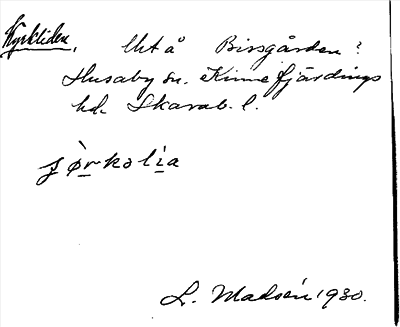 Kyrkliden, Utå Bissgården?
Husaby sn. Kinnefjärdings
hd. Skarab. l.
jørkəlia
L. Madsén 1930.